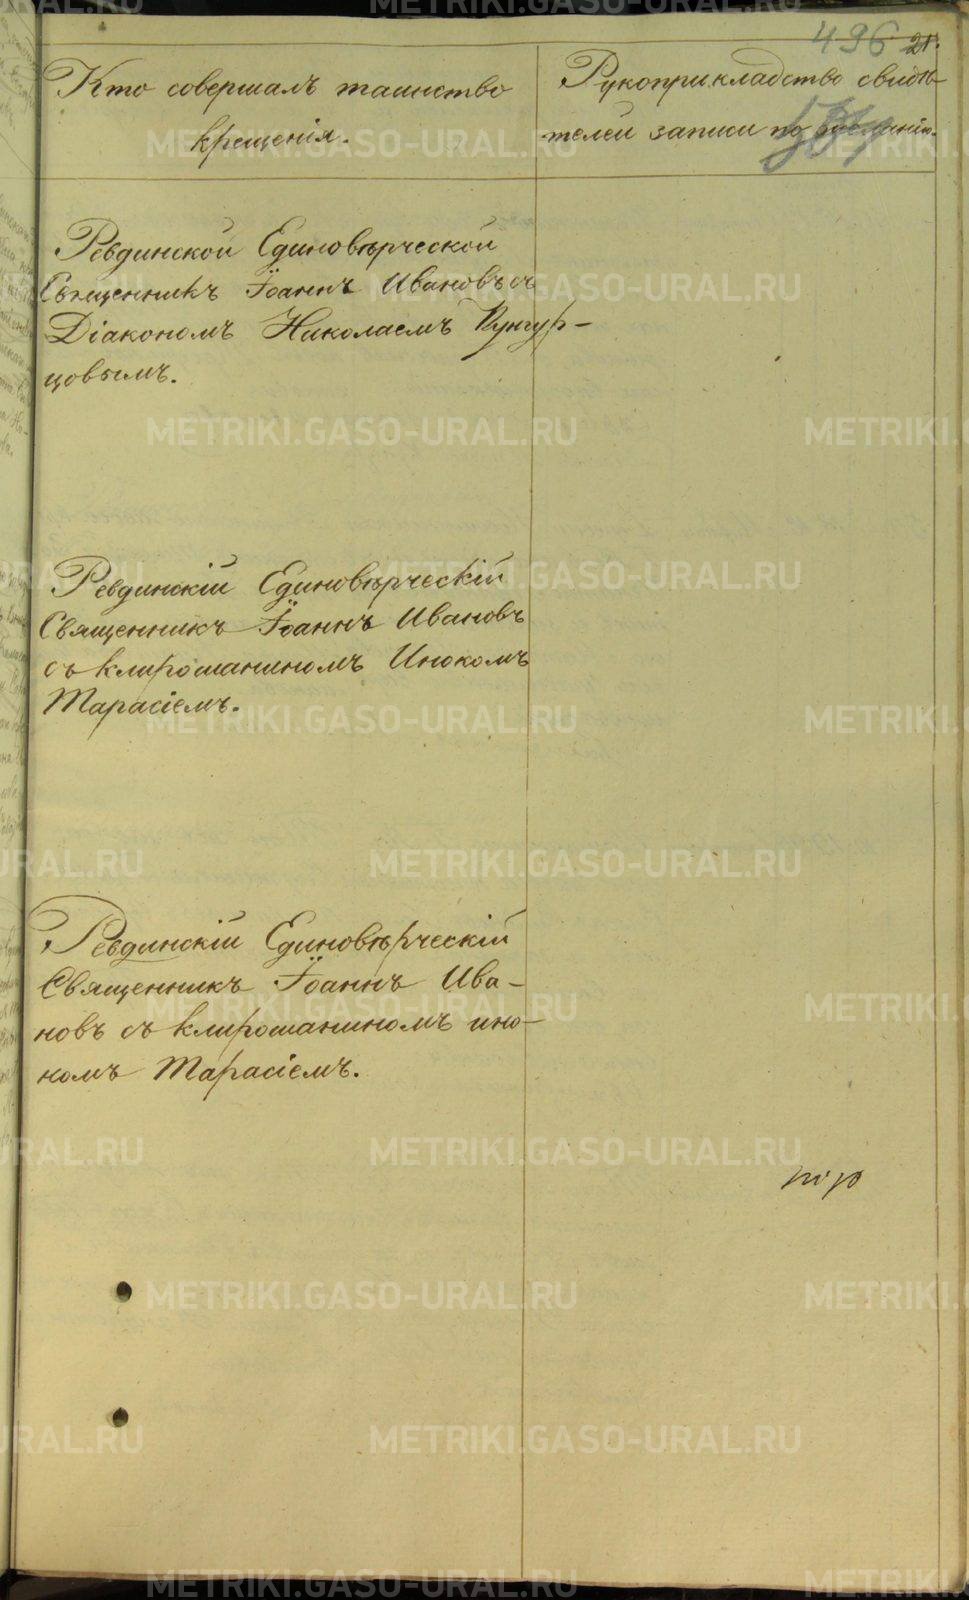 496 21.
Кто совершалъ таинство
крещенія.
Рукоприкладство свидѣ-
телей записи по
Ревдинской Единовѣрческой
Священникъ Іоаннъ Ивановъ съ
Діакономъ Николаемъ Кунгур-
цовымъ.
Ревдинскій Единовѣрческій
Священникъ Іоаннъ Ивановъ
съ клирошаниномъ Инокомъ
Тарасіемъ.
Ревдинскій Единовѣрческій
Священникъ Іоаннъ Ива-
новъ съ клирошаниномъ ино-
комъ Тарасіемъ.
METRIKI.GASO-URAL.RU